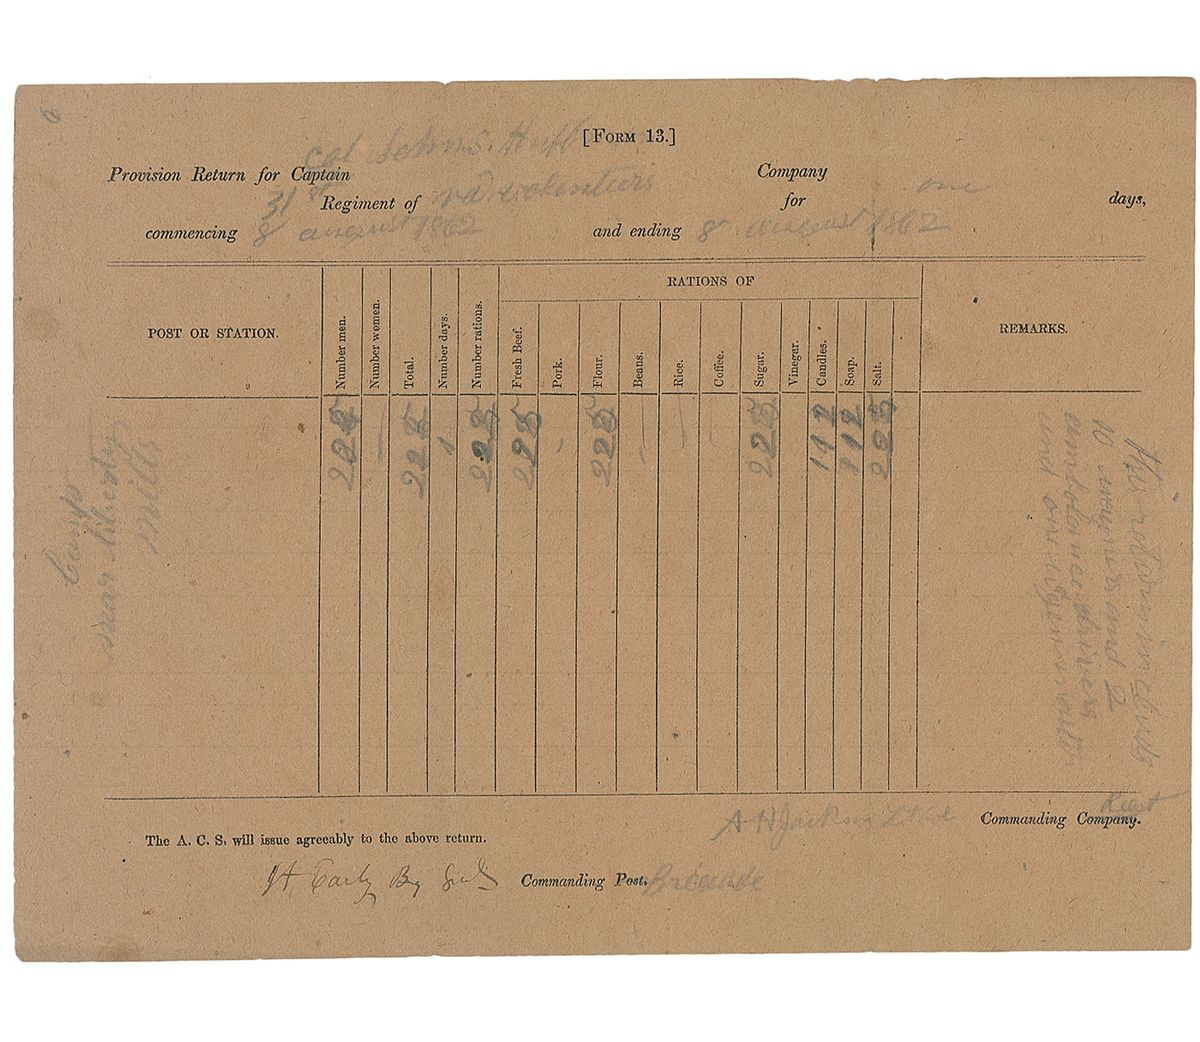 [FORM 13.]
Provision Return for Captain Col John S. Hoff Company
31st Regiment of va volenteirs for one days,
commencing 8 august 1862 and ending 8 august 1862
POST OR STATION.
Number men.
Number women.
Total.
Number days.
Number rations.
RATIONS OF
Fresh Beef.
Pork.
Flour.
Beans.
Rice.
Coffee.
Sugar.
Vinegar.
Candles.
Soap.
Salt.
REMARKS.
Camp
near Liberty
Mills
1
112
112
this return includs
10 wagners and 2
ambolance drivers
and one
The A. C. S. will issue agreeably to the above return.
A H Jackson Lt Col Commanding Company. Regt
J A Early Brg Genl Commanding Post. Briggade